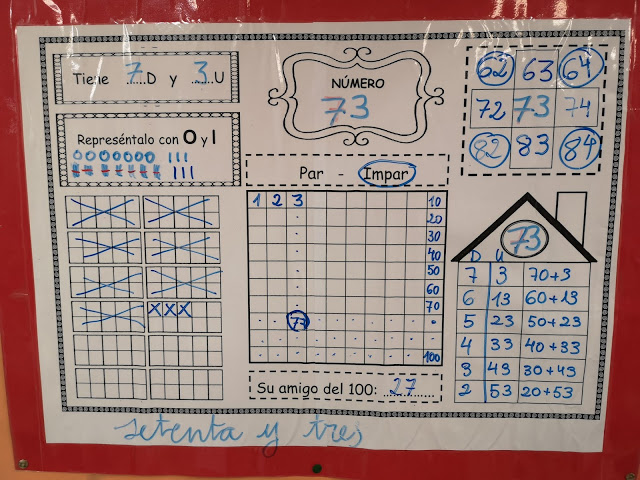 Tiene 7 D y 3 U
Represéntalo con O y I
OOOOOOO III
III
XXX
NÚMERO
73
Par - Impar
1 2 3 10
20
30
40
50
60
70
73
100
Su amigo del 100: 27
62 63 64
72 73 74
82 83 84
73
D U
7 3 70+3
6 13 60+13
5 23 50+23
4 33 40+33
3 43 30+43
2 53 20+53
setenta y tres